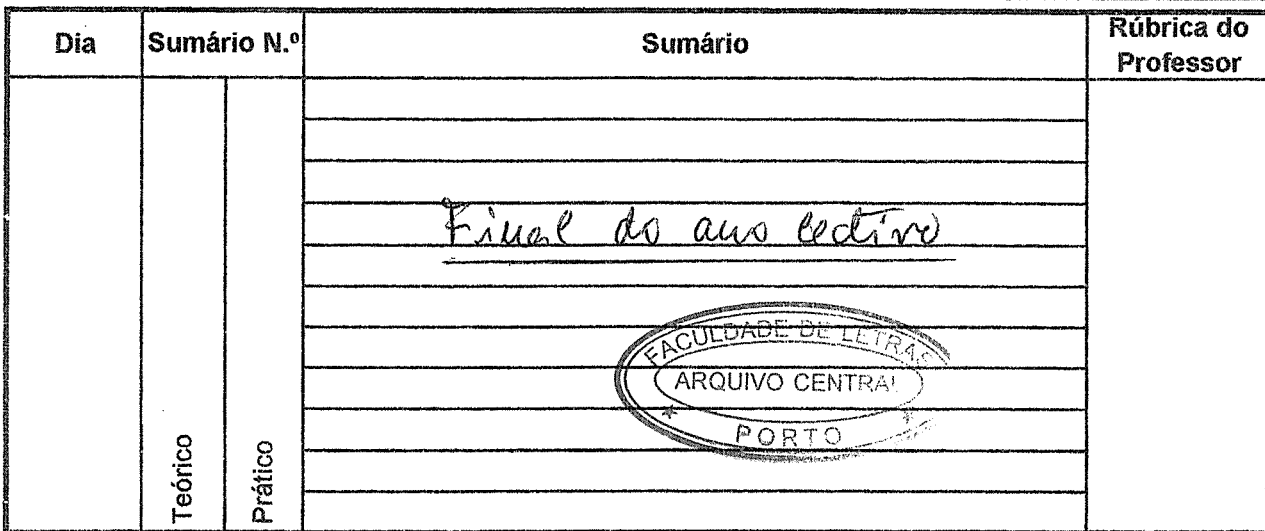 Dia
Sumário N.º
Sumário
Rúbrica do
Professor
Teórico
Prático
Final do ano lectivo
FACULDADE DE LETRAS
ARQUIVO CENTRAL
PORTO